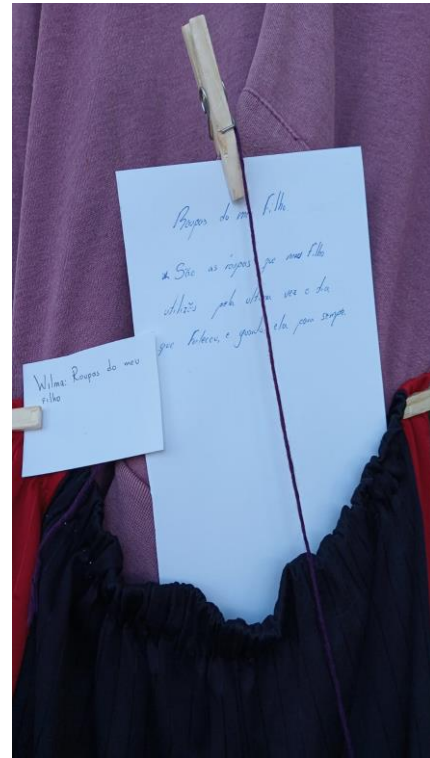 Roupas do meu Filho.
São as roupas que meu Filho
utilizou pela ultima vez o dia
que Faleceu, e guardo ela para sempre.
Wilma: Roupas do meu
Filho